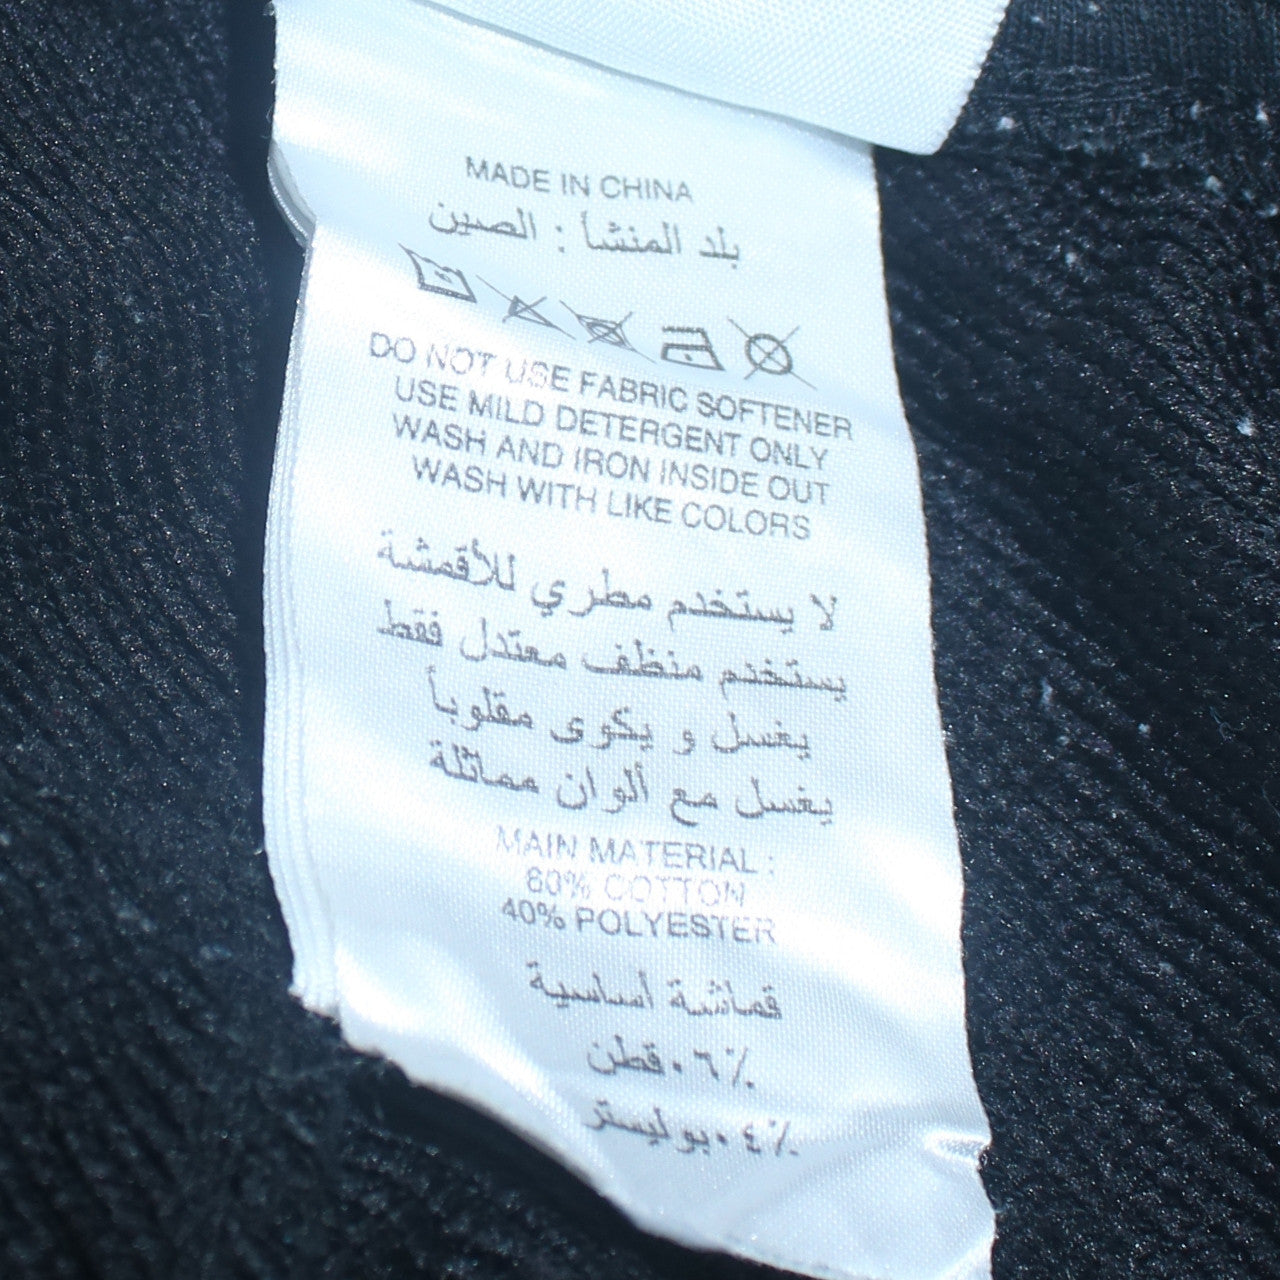 MADE IN CHINA
بلد المنشأ : الصين
DO NOT USE FABRIC SOFTENER
USE MILD DETERGENT ONLY
WASH AND IRON INSIDE OUT
WASH WITH LIKE COLORS
لا يستخدم مطري للأقمشة
يستخدم منظف معتدل فقط
يغسل و يكوى مقلوباً
يغسل مع ألوان مماثلة
MAIN MATERIAL :
60% COTTON
40% POLYESTER
قماشة اساسية
٪٦٠ قطن
٪٤٠ بوليستر